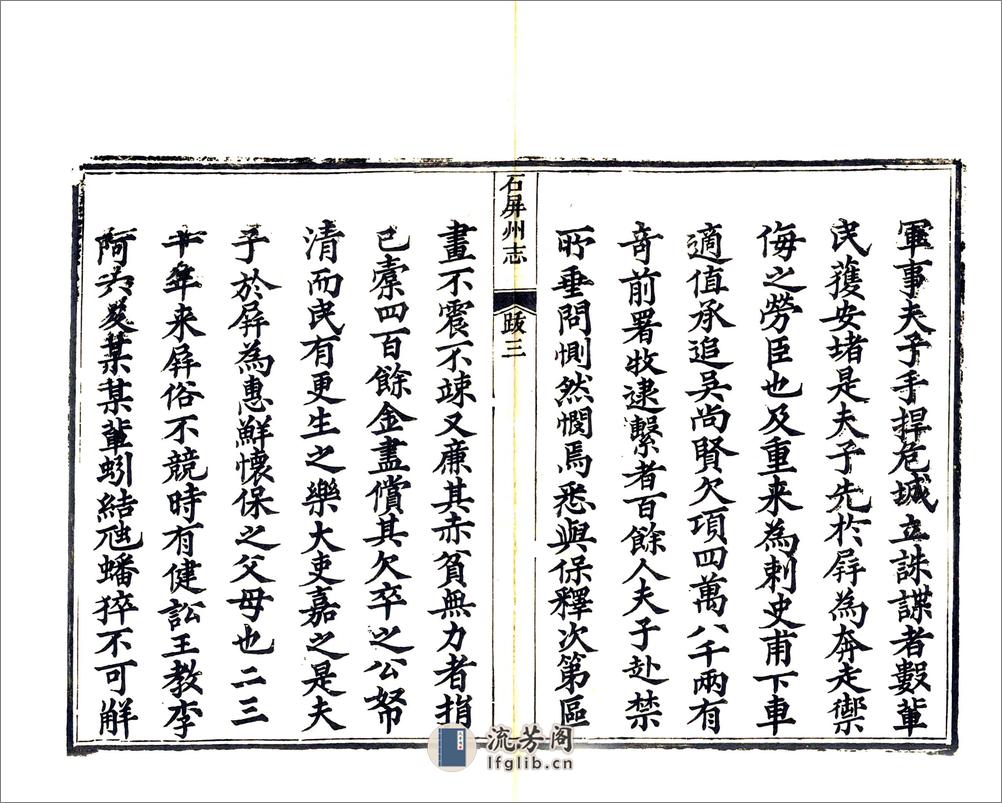 軍事夫子手捍危城立誅諜者數輩
民獲安堵是夫子先於屏為奔走禦
侮之勞臣也及重来為刺史甫下車
適值承追吳尚賢欠項四萬八千兩有
奇前署牧逮繫者百餘人夫子赴禁
所垂問惻然憫焉悉與保釋次第區
石屏州志
跋三
畫不震不竦又廉其赤貧無力者捐
已橐四百餘金盡償其欠卒之公帑
清而民有更生之樂大吏嘉之是夫
子於屏為惠鮮懷保之父母也二三
十年来屏俗不競時有健訟王教李
阿六爻某某輩蚓結虺蟠猝不可解
流芳阁
lfglib.cn